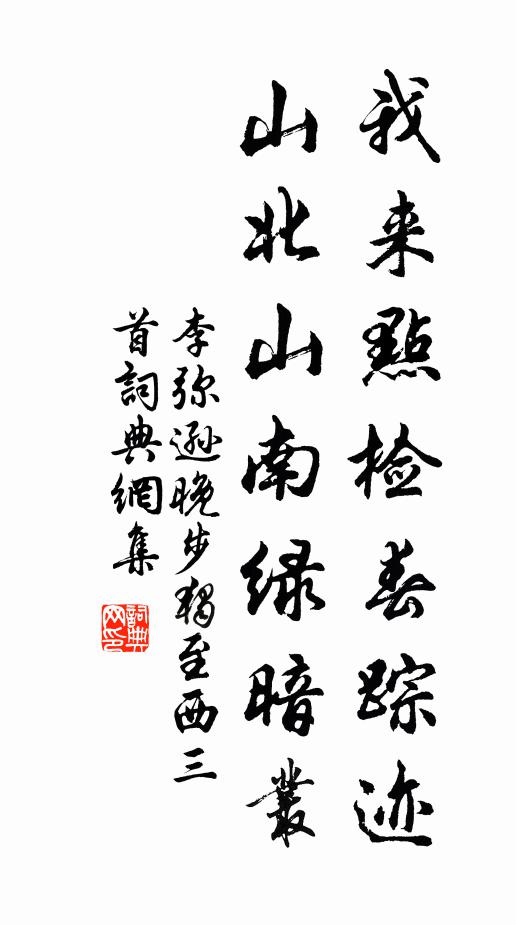 我来點检春踪迹
山北山南绿暗叢
李弥遜晚步獨至西三
首詞典網集
詞典网印